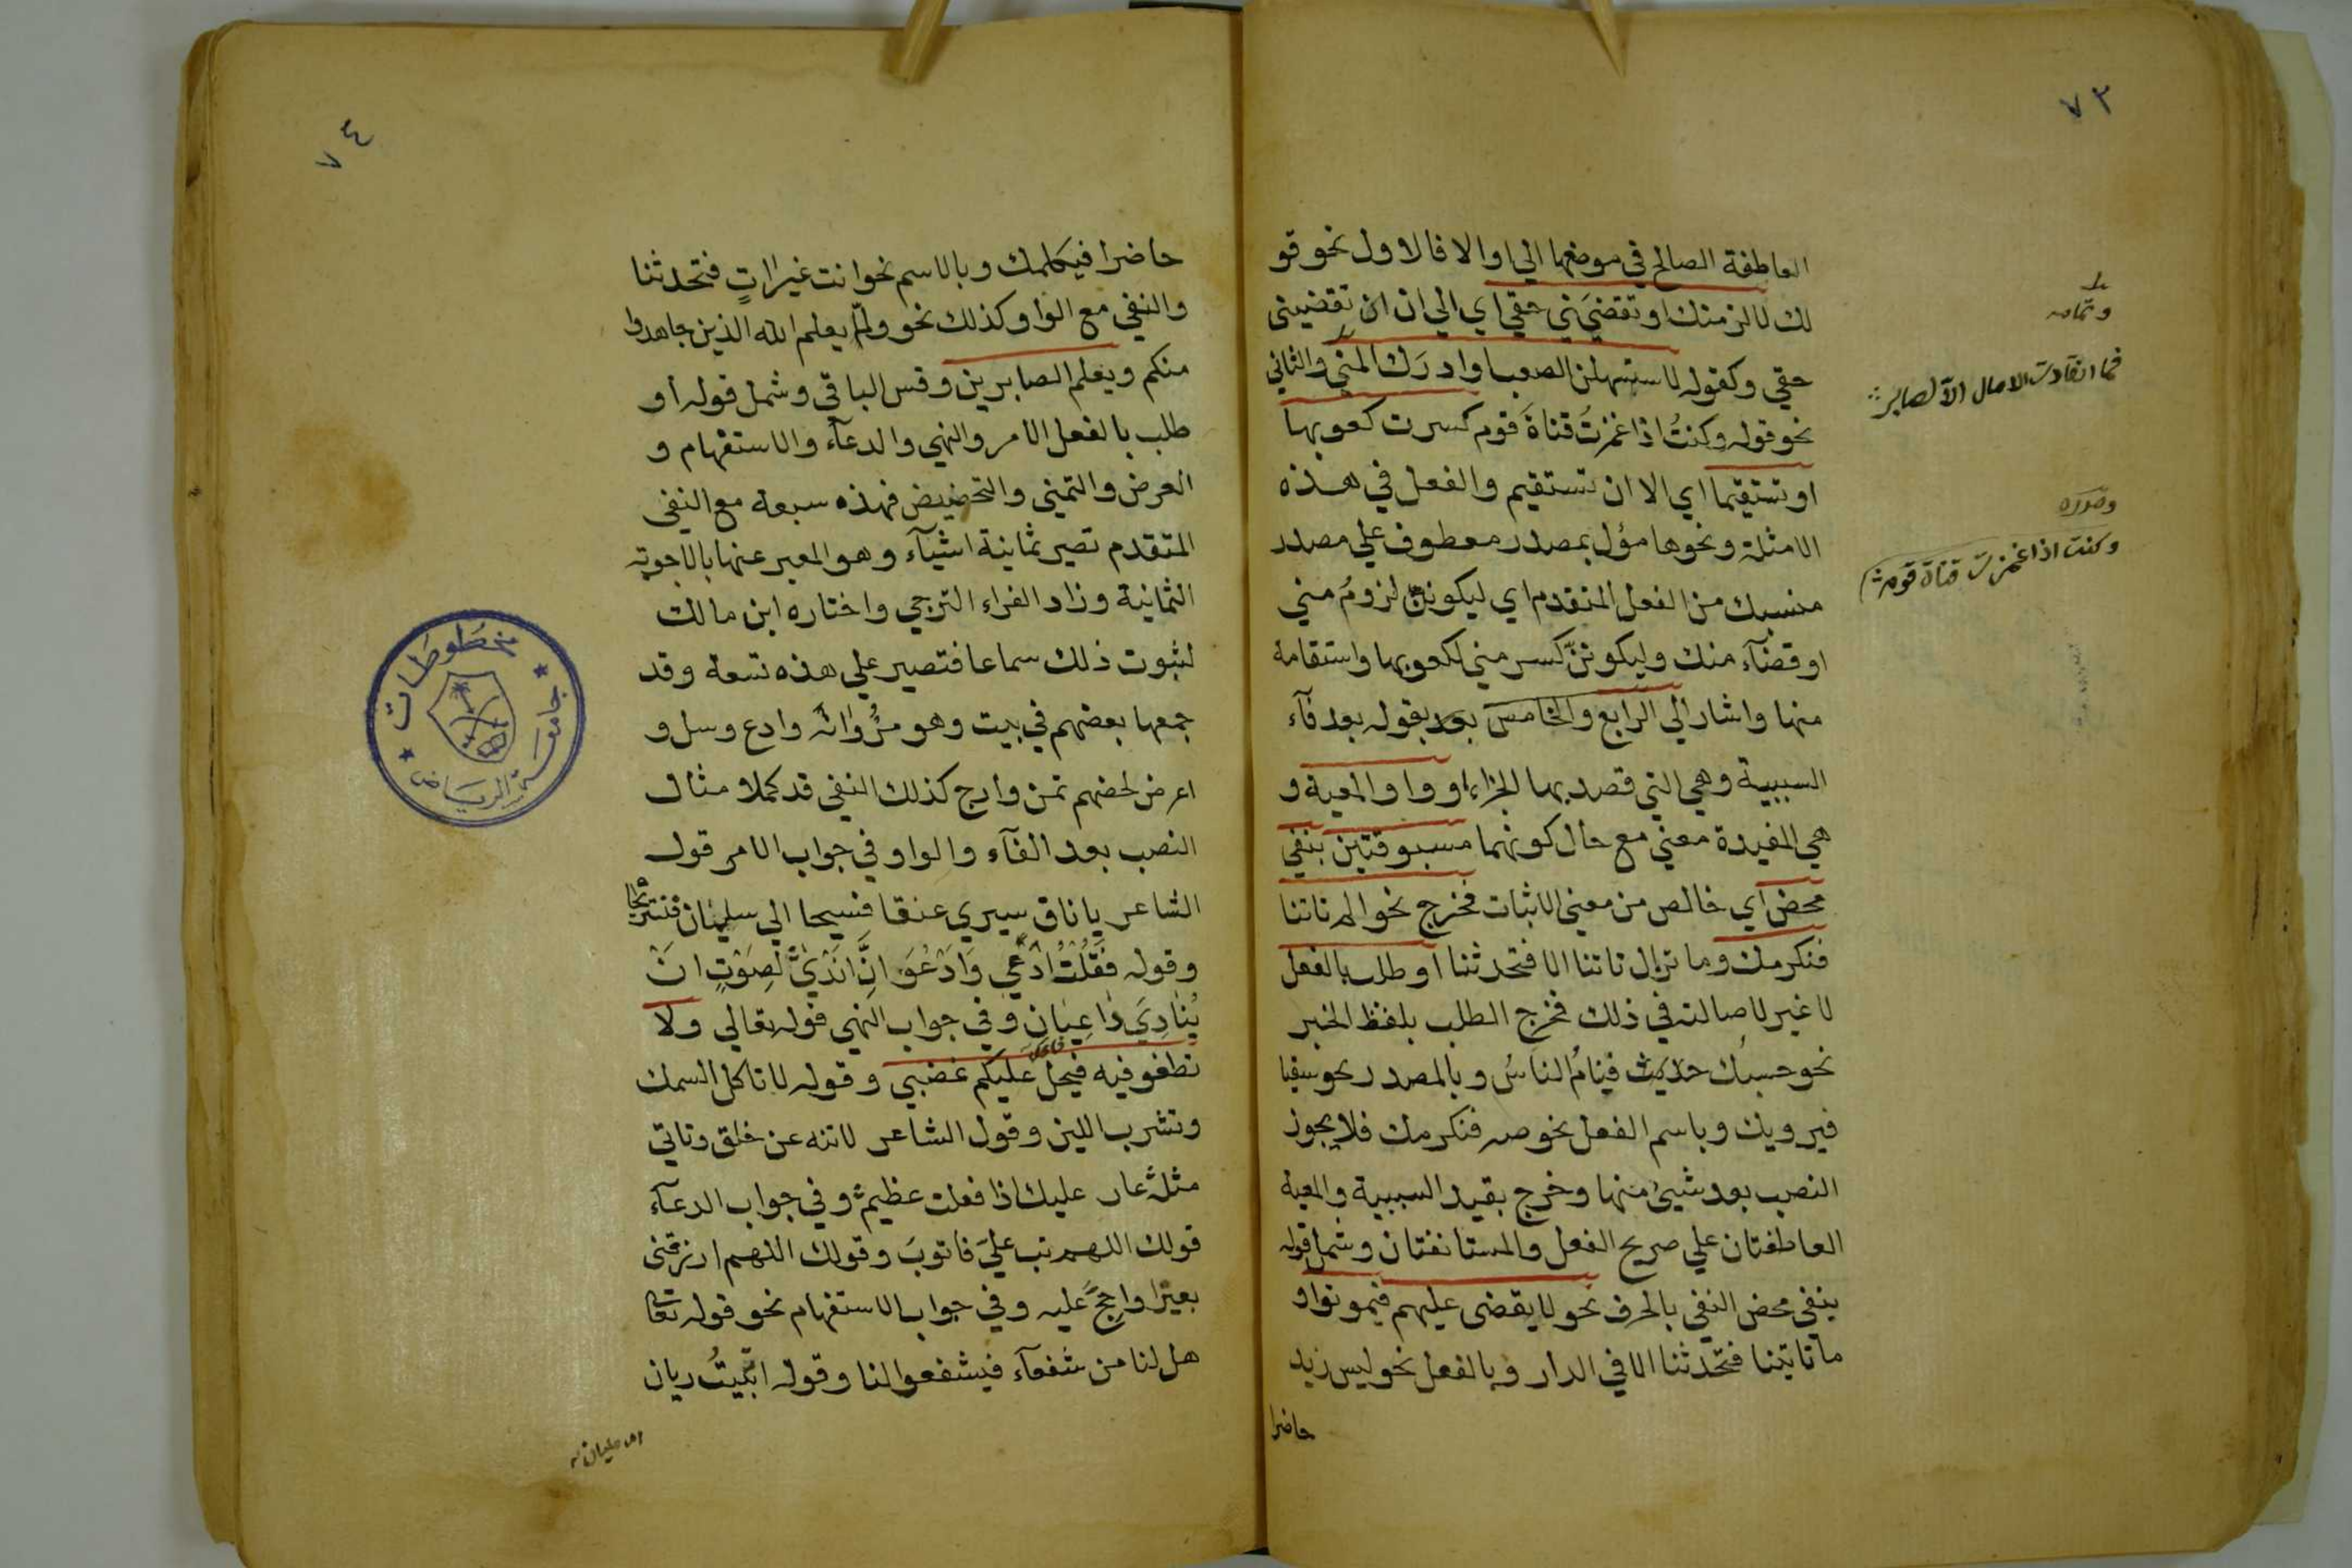 ٧٣
العاطفة الصالح في موضعها الي او الا فالاول نحو قو
لك لالزمنك او تقضيَني حقي اي الي ان ان تقضيني
حقي وكقوله لاستسهلن الصعب او ادرَك المني والثاني
نحو قوله وكنتُ اذا غمزتُ قناةَ قوم كسرت كعوبها
او تستقيما اي الا ان تستقيم والفعل في هذه
الامثلة ونحوها مؤل بمصدر معطوف علي مصدر
منسبك من الفعل المتقدم اي ليكوننّ لزومُ مني
او قضآء منك وليكوننّ كسر مني لكعوبها واستقامة
منها واشار الي الرابع والخامس بعد بقوله بعد فآء
السببية وهي التي قصد بها الجزاء او واو المعية و
هي المفيدة معني مع حال كونهما مسبوقتين بنفي
محض اي خالص من معني الاثبات فخرج نحو الم تاتنا
فنكرمك وما تزال تاتنا الا فتحدثنا او طلب بالفعل
لا غير لاصالته في ذلك فخرج الطلب بلفظ الخبر
نحو حسبُك حديث فينامُ الناسُ وبالمصدر نحو سقيا
فيرويك وباسم الفعل نحو صه فنكرمك فلا يجوز
النصب بعد شيئ منها وخرج بقيد السببية والمعية
العاطفتان علي صريح الفعل والمستانفتان وشمل قوله
بنفي محض النفي بالحرف نحو لا يقضي عليهم فيموتوا و
ما تاتينا فتحدثنا الا في الدار وبالفعل نحو ليس زيد
حاضرا
وتمامه
فما انقادت الامال الا لصابر
وصدره
وكنت اذا غمزت قناة قوم
٧٤
حاضرا فيكلمك وبالاسم نحو انت غير اٰتٍ فتحدثنا
والنفي مع الواو كذلك نحو ولمّا يعلم الله الذين جاهدوا
منكم ويعلم الصابرين وقس الباقي وشمل قوله او
طلب بالفعل الامر والنهي والدعآء والاستفهام و
العرض والتمني والتحضيض فهذه سبعة مع النفي
المتقدم تصير ثمانية اشيآء وهو المعبر عنها بالاجوبة
الثمانية وزاد الفراء الترجي واختاره ابن مالك
لثبوت ذلك سماعا فتصير علي هذه تسعة وقد
جمعها بعضهم في بيت وهو مُرْ وَانْهَ وادع وسل و
اعرض لحضهم تمن وارج كذلك النفي قد كملا مثال
النصب بعد الفآء والواو في جواب الامر قول
الشاعر يا ناق سيري عنقا فسيحا الي سليمان فنستريحا
وقوله فَقُلْتُ ادْعِي وَادْعُوَ اِنَّ انْدَيٰ لِصَوْتٍ انْ
يُنٰادِيَ دٰاعِيٰانِ وفي جواب النهي قوله تعالي ولا
تطغو فيه فيحل عليكم غضبي وقوله لا تاكل السمك
وتشرب اللبن وقول الشاعر لا تنه عن خلق وتاتي
مثله عار عليك اذا فعلت عظيم وفي جواب الدعآء
قولك اللهم تب عليَ فاتوبَ وقولك اللهم ارزقني
بعيرًا واحجَّ عليه وفي جواب الاستفهام نحو قوله تعا
هل لنا من شفعآء فيشفعوا لنا وقوله اتبيتُ ريان
مخطوطات
جامعة الرياض